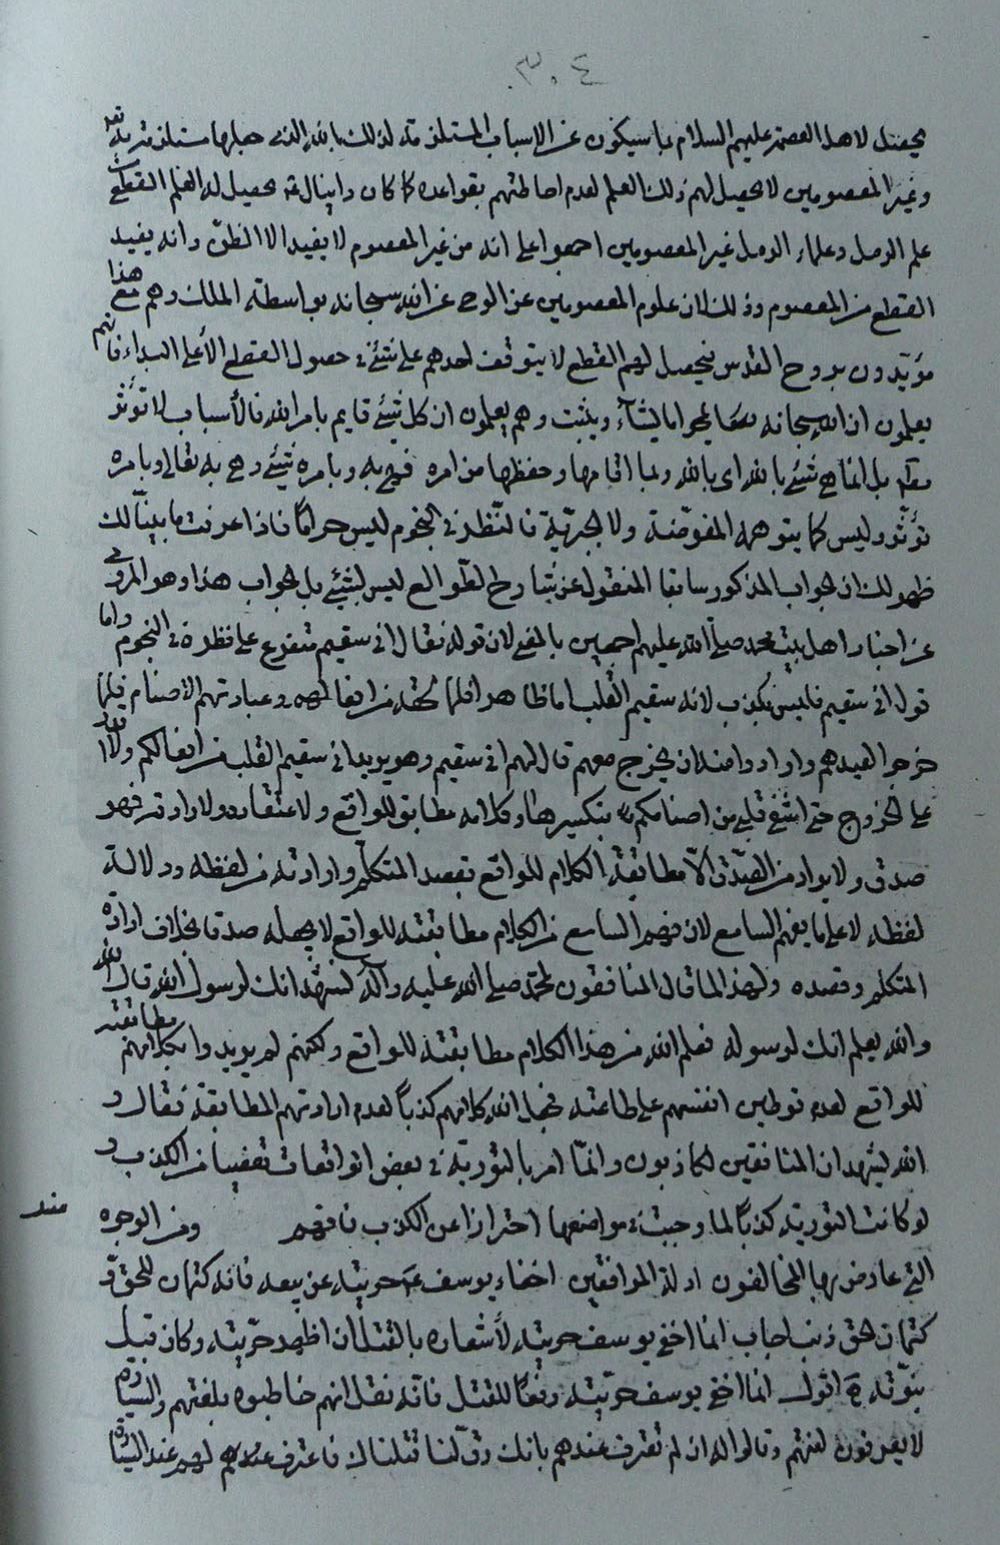 ٣٠٤
يحصل لاهل العصمة عليهم السلام بما سيكون عن الاسباب المستلزمة لذلك بالله الذي جعلها مستلزمة به
وغير المعصومين لا يحصل لهم ذلك العلم لعدم احاطتهم بقواعده كما كان دانيال يحصل له العلم القطعي
علم الرمل وعلماء الرمل غير المعصومين اجمعوا على انه من غير المعصوم لا يفيد الا الظن وانه يفيد
القطع من المعصوم وذلك لان علوم المعصومين عن الوحي عن الله سبحانه بواسطة الملك وهم مع هذا
مؤيدون بروح القدس فيحصل لهم القطع لا يتوقف احدهم على شيء في حصول القطع الا على البداء فانهم
يعلمون ان الله سبحانه يمحو ما يشاء ويثبت وهم يعلمون ان كل شيء قايم بامر الله فالأسباب لا تؤثر
بل انما هي شيء بالله اي بالله وبما اقامها وحفظها من امره فهي به وبامره شيء وهي به تعالى وبامره
تؤثر وليس كما يتوهمه المفوضة ولا الجبرية فالنظر في النجوم ليس حراما فاذا عرفت ما بينا لك
ظهر لك ان الجواب المذكور سابقا المنقول عن شارح الطوالع ليس بشيء بل الجواب هذا وهو المروي
عن اخبار اهل بيت محمد صلى الله عليهم اجمعين بالمعنى لان قوله فقال اني سقيم متفرع على فنظر نظرة في النجوم واما
قوله اني سقيم فليس بكذب لانه سقيم القلب اما ظاهرا فلما لحقه من افعالهم وعبادتهم الاصنام فلما
خرجوا لعيدهم وارادوا منه ان يخرج معهم قال لهم اني سقيم وهو يريد اني سقيم القلب من افعالكم ولا اقدر
على الخروج حتى اشفي قلبي من اصنامكم بتكسيرها وكلامه مطابق للواقع ولاعتقاده ولارادته فهو
صدق ولا يراد من الصدق الا مطابقة الكلام للواقع بقصد المتكلم وارادته من لفظه ودلالة
لفظه لا على ما يفهم السامع لان فهم السامع من الكلام مطابقته للواقع لا يجعله صدقا بخلاف ارادة
المتكلم وقصده ولهذا لما قال المنافقون لمحمد صلى الله عليه وآله نشهد انك لرسول الله قال الله
والله يعلم انك لرسوله فعلم الله من هذا الكلام مطابقته للواقع ولكنهم لم يريدوا بكلامهم مطابقته
للواقع لعدم توطين انفسهم على طاعته فجعل الله كلامهم كذبا لعدم ارادتهم المطابقة فقال و
الله يشهد ان المنافقين لكاذبون وانما امر بالتورية في بعض الواقعات تفصيا من الكذب و
لو كانت التورية كذبا لما وجبت في مواضعها احترازا عن الكذب فافهم ومن الوجوه
التي عارض بها المخالفون ادلة الموافقين اخفاء يوسف حريته عن بيعه فانه كتمان للحق و
كتمان الحق ذنب اجاب انما اخفى يوسف حريته لأشعاره بالقتل ان اظهر حريته وكان قبل
نبوته اقول انما اخفى يوسف حريته دفعا للقتل فانه نقل انهم خاطبوه بلغتهم والسيارة
لا يعرفون لغتهم وقالوا له ان لم تعترف عندهم بانك رق لنا قتلناك فاعترف لهم عند السيارة